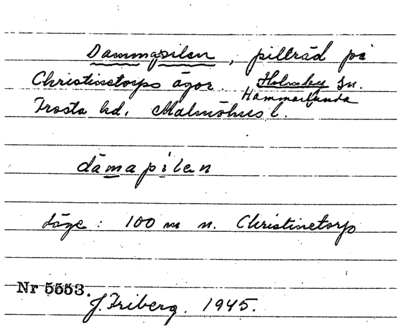 Dammapilen, pilträd på
Christinetorps ägor. Holmby sn.
Hammarlunda
Frosta hd. Malmöhus l.
dämapilen
Läge: 100 m n. Christinetorp
Nr 5553.
J. Friberg. 1945.